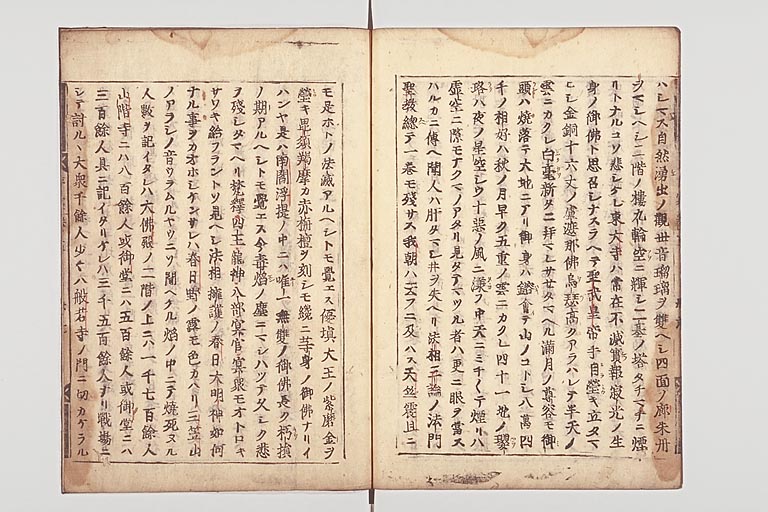 ハシマス自然湧出ノ觀世音瑠璃ヲ雙ヘシ四面ノ廊朱丹
ヲマシヘシ二階ノ樓九輪空ニ輝シ二基ノ塔タチマチニ煙
リトナルコソ悲シケレ東大寺ハ常在不滅實報寂光ノ生
身ノ御佛ト思召シナスラヘテ聖武皇帝手自瑩キ立タマ
ヒシ金銅十六丈ノ盧遮那佛烏瑟高クアラハレテ半天ノ
雲ニカクレ白毫新タニ拜マレサセタマヘル滿月ノ尊容モ御
頭ハ燒落テ大地ニアリ御身ハ鎔合テ山ノコトシ八萬四
千ノ相好ハ秋ノ月早ク五重ノ雲ニカクレ四十一地ノ瓔
珞ハ夜ノ星空シウ十惡ノ風ニ漂フ中天ニミチ〳〵テ煙リハ
虚空ニ隙モナクマノアタリ見タテマツル者ハ更ニ眼ヲ當ス
ハルカニ傳ヘ聞人ハ肝タマシ井ヲ失ヘリ法相三論ノ法門
聖教總テ一巻モ殘サス我朝ハ云フニ及ハス天竺震旦ニ
モ是ホトノ法滅アルヘシトモ覺エス優填大王ノ紫磨金ヲ
瑩キ毘須羯摩カ赤栴檀ヲ刻シモ纔ニ等身ノ御佛ナリイ
ハンヤ是ハ南閻浮提ノ中ニハ唯一無雙ノ御佛長ク朽損
ノ期アルヘシトモ覺エス今毒焰ノ塵ニマシハツテ久シク悲
ヲ殘シタマヘリ梵釋四王龍神八部冥官冥衆モオトロキ
サワキ給フラントソ見ヘシ法相擁護ノ春日大明神如何
ナル事ヲカオホシケンサレハ春日野ノ露モ色カハリ三笠山
ノアラシノ音ウラムルサマニソ聞ヘケル焰ノ中ニテ燒死ヌル
人數ヲ記イタレハ大佛殿ノ二階ノ上ニハ一千七百餘人
山階寺ニハ八百餘人或御堂ニハ五百餘人或御堂ニハ
三百餘人具ニ記イタリケレハ三千五百餘人ナリ戰場ニ
シテ討ルヽ大衆千餘人少々ハ般若寺ノ門ニ切カケラル